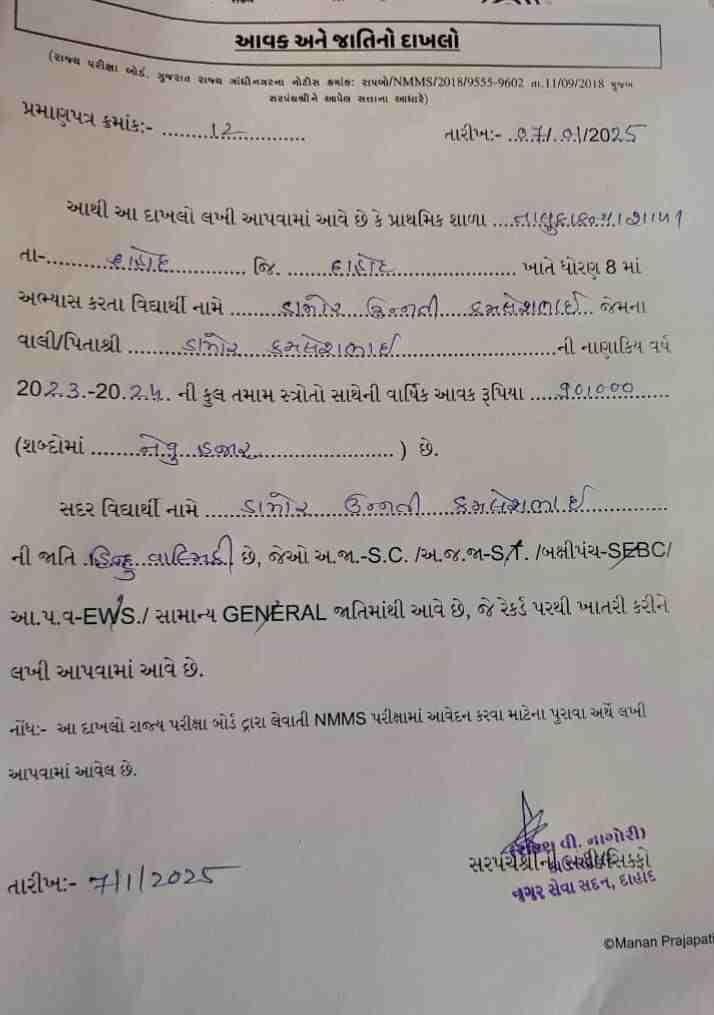 આવક અને જાતિનો દાખલો
(રાજ્ય પરીક્ષા બોર્ડ. ગુજરાત રાજ્ય ગાંધીનગરના નોટીસ ક્રમાંક: રાપબો/NMMS/2018/9555-9602 તા.11/09/2018 મુજબ
સરપંચશ્રીને આપેલ સત્તાના આધારે)
પ્રમાણપત્ર ક્રમાંક:- ........12............
તારીખ:- ..07/.01/2025
આથી આ દાખલો લખી આપવામાં આવે છે કે પ્રાથમિક શાળા ...તાલુકા કન્યા શાળા
તા-.........દાહોદ............ જિ. ......દાહોદ.................. ખાતે ધોરણ 8 માં
અભ્યાસ કરતા વિદ્યાર્થી નામે .......ડામોર ઉન્નતી કમલેશભાઈ... જેમના
વાલી/પિતાશ્રી .......ડામોર કમલેશભાઈ.......................ની નાણાકિય વર્ષ
202.3.-20.24. ની કુલ તમામ સ્ત્રોતો સાથેની વાર્ષિક આવક રૂપિયા ....90000......
(શબ્દોમાં .......નેવુ હજાર..................... ) છે.
સદર વિદ્યાર્થી નામે .....ડામોર ઉન્નતી કમલેશભાઈ............
ની જાતિ .હિન્દુ વાલ્મિકી છે, જેઓ અ.જા.-S.C. /અ.જ.જા-S.T. /બક્ષીપંચ-SEBC/
આ.પ.વ-EWS./ સામાન્ય GENERAL જાતિમાંથી આવે છે, જે રેકર્ડ પરથી ખાતરી કરીને
લખી આપવામાં આવે છે.
નોંધ:- આ દાખલો રાજ્ય પરીક્ષા બોર્ડ દ્વારા લેવાતી NMMS પરીક્ષામાં આવેદન કરવા માટેના પુરાવા અર્થે લખી
આપવામાં આવેલ છે.
વી. નાગોરી)
સરપંચશ્રીની સહી/સિક્કો
નગર સેવા સદન, દાહોદ
તારીખ:- 7/1/2025
©Manan Prajapati